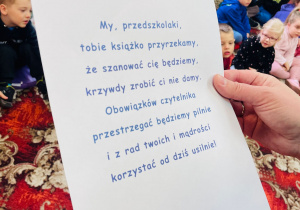 My, przedszkolaki,
tobie książko przyrzekamy,
że szanować cię będziemy,
krzywdy zrobić ci nie damy.
Obowiązków czytelnika
przestrzegać będziemy pilnie
i z rad twoich i mądrości
korzystać od dziś usilnie!